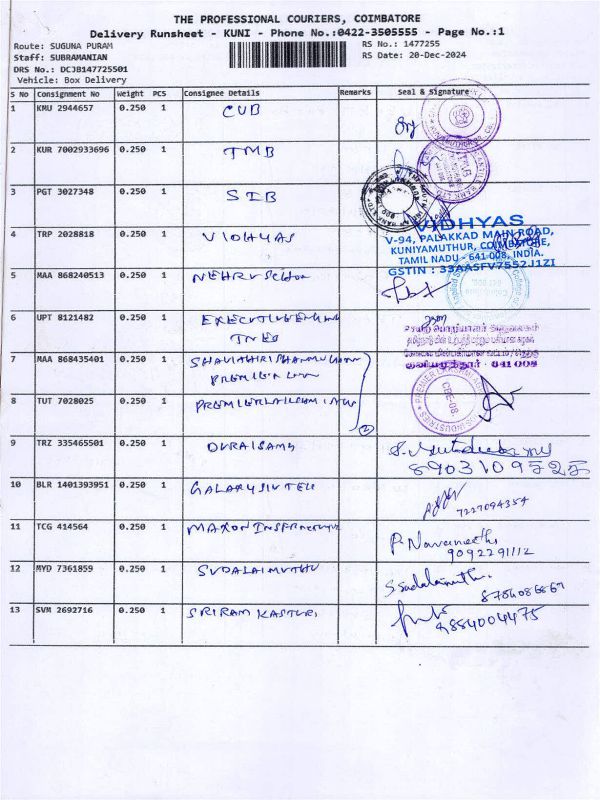 THE PROFESSIONAL COURIERS, COIMBATORE
Delivery Runsheet - KUNI - Phone No.:0422-3505555 - Page No.:1
Route: SUGUNA PURAM
RS No.: 1477255
Staff: SUBRAMANIAN
RS Date: 20-Dec-2024
DRS No.: DCJB147725501
Vehicle: Box Delivery
S No Consignment No Weight PCS Consignee Details Remarks Seal & Signature
1 KMU 2944657 0.250 1 CUB
2 KUR 7002933696 0.250 1 TMB
3 PGT 3027348 0.250 1 SIB
4 TRP 2028818 0.250 1 VIDHYAS
VIDHYAS
V-94, PALAKKAD MAIN ROAD,
KUNIYAMUTHUR, COIMBATORE,
TAMIL NADU - 641 008, INDIA.
GSTIN : 33AASFV7552J1ZI
5 MAA 868240513 0.250 1 NEHRU
6 UPT 8121482 0.250 1 EXECUTIVE
641 008
7 MAA 868435401 0.250 1
PREMIER
8 TUT 7028025 0.250 1
2
9 TRZ 335465501 0.250 1 DURAISAMY
10 BLR 1401393951 0.250 1
7227094354
11 TCG 414564 0.250 1 MAXON
P. Navaneeth
9092291112
12 MYD 7361859 0.250 1 SUDALAIMUTHU
S Sudalaimuthu.
13 SVM 2692716 0.250 1 SRIRAM KASTURI
9884004475